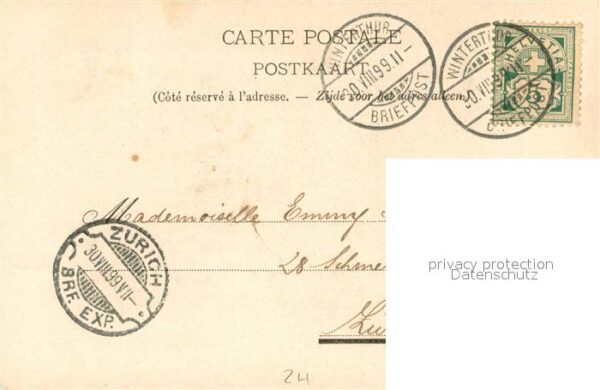 CARTE POSTALE
POSTKAART
(Côté réservé à l'adresse. — Zijde voor het adres alleen.)
WINTERTHUR
30.VIII.99.11–
BRIEFPOST
WINTERTHUR
30.VIII.99.11–
BRIEFPOST
HELVETIA
5
Mademoiselle Emmy
28 Schme
Zü
ZÜRICH
30.VIII.99.VII–
BRF. EXP.
privacy protection
Datenschutz
24